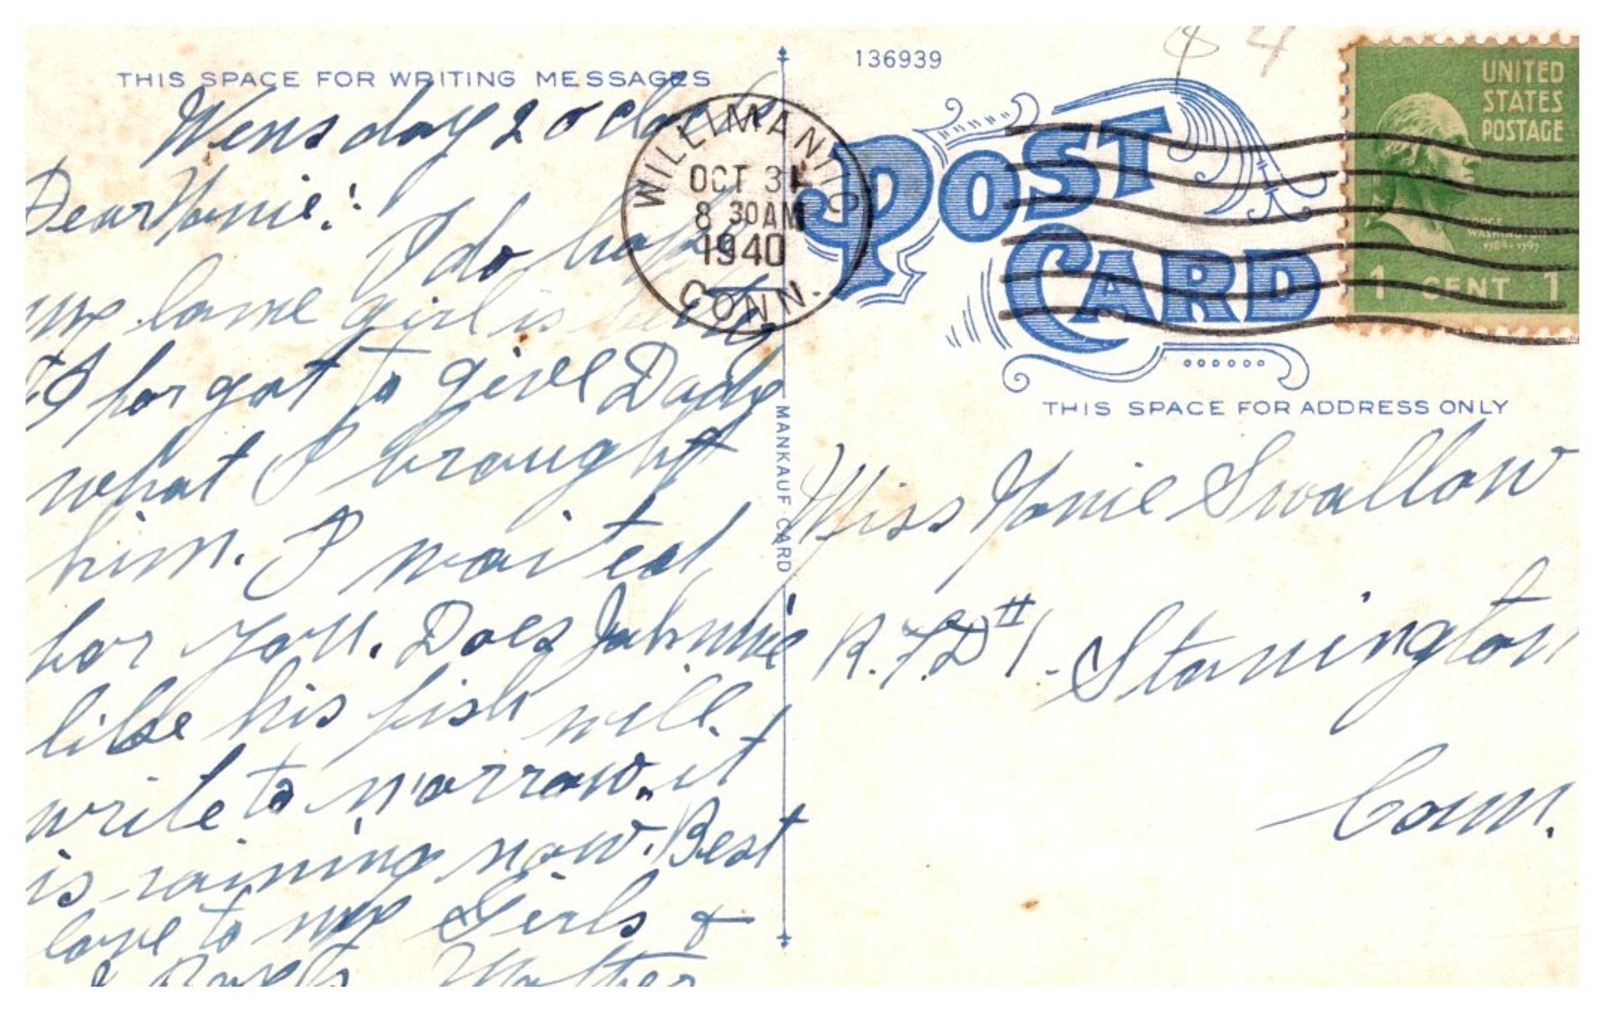 THIS SPACE FOR WRITING MESSAGES
Wensday 2 o clock
Dear Yonie!
I do hope
my lame girl is
I forgot to give Dady
what I braught
him. I waited
for you. Does Johnnie
like his fish will
write to morrow. it
is raining now. Best
love to my Girls &
Boys Mother
MANKAUF CARD
136939
84
POST
CARD
WILLIMANTIC
OCT 31
8 30AM
1940
CONN.
UNITED
STATES
POSTAGE
GEORGE
WASHINGTON
1789-1797
1 CENT 1
THIS SPACE FOR ADDRESS ONLY
Miss Yonie Swallow
R.F.D #1. Stonington
Conn.